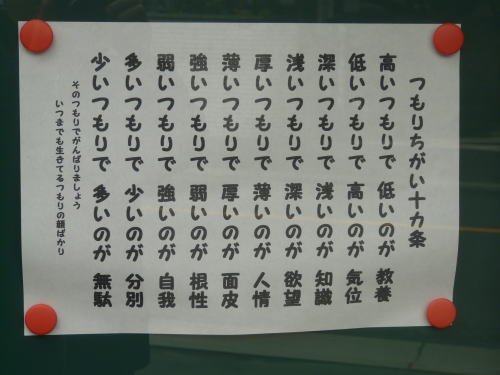 つもりちがい十カ条
高いつもりで 低いのが 教養
低いつもりで 高いのが 気位
深いつもりで 浅いのが 知識
浅いつもりで 深いのが 欲望
厚いつもりで 薄いのが 人情
薄いつもりで 厚いのが 面皮
強いつもりで 弱いのが 根性
弱いつもりで 強いのが 自我
多いつもりで 少いのが 分別
少いつもりで 多いのが 無駄
そのつもりでがんばりましょう
いつまでも生きてるつもりの顔ばかり